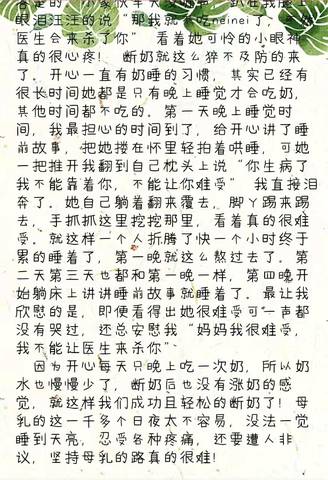 眼泪汪汪的说“那我就不吃neinei了，
医生会来杀了你” 看着她可怜的小眼神
真的很心疼！ 断奶就这么猝不及防的来
了。开心一直有奶睡的习惯，其实已经有
很长时间她都是只有晚上睡觉才会吃奶，
其他时间都不吃的。第一天晚上睡觉时
间，我最担心的时间到了，给开心讲了睡
前故事，把她搂在怀里轻拍着哄睡，可她
一把推开我翻到自己枕头上说“你生病了
我不能靠着你，不能让你难受” 我直接泪
奔了。她自己躺着翻来覆去，脚丫踢来踢
去，手抓抓这里挖挖那里，看着真的很难
受。就这样一个人折腾了快一个小时终于
累的睡着了，第一晚就这么熬过去了。第
二天第三天也都和第一晚一样，第四晚开
始躺床上讲讲睡前故事就睡着了。最让我
欣慰的是，即便看得出她很难受可一声都
没有哭过，还总安慰我“妈妈我很难受，
我不能让医生来杀你”
因为开心每天只晚上吃一次奶，所以奶
水也慢慢少了，断奶后也没有涨奶的感
觉，就这样我们成功且轻松的断奶了！母
乳的这一千多个日夜太不容易，没法一觉
睡到天亮，忍受各种疼痛，还要遭人非
议，坚持母乳的路真的很难！